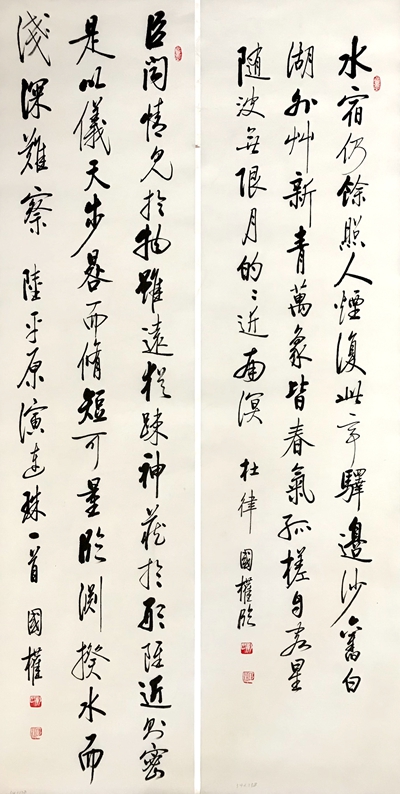 水宿仍餘照人煙復此亭驛邊沙舊白
湖外艸新青萬象皆春氣孤槎自客星
随波無限月的〻近南溟 杜律 國權臨
臣聞情見於物雖遠猶疎神藏於形雖近則密
是以儀天步晷而脩短可量臨淵揆水而
淺深難察 陸平原演連珠一首 國權